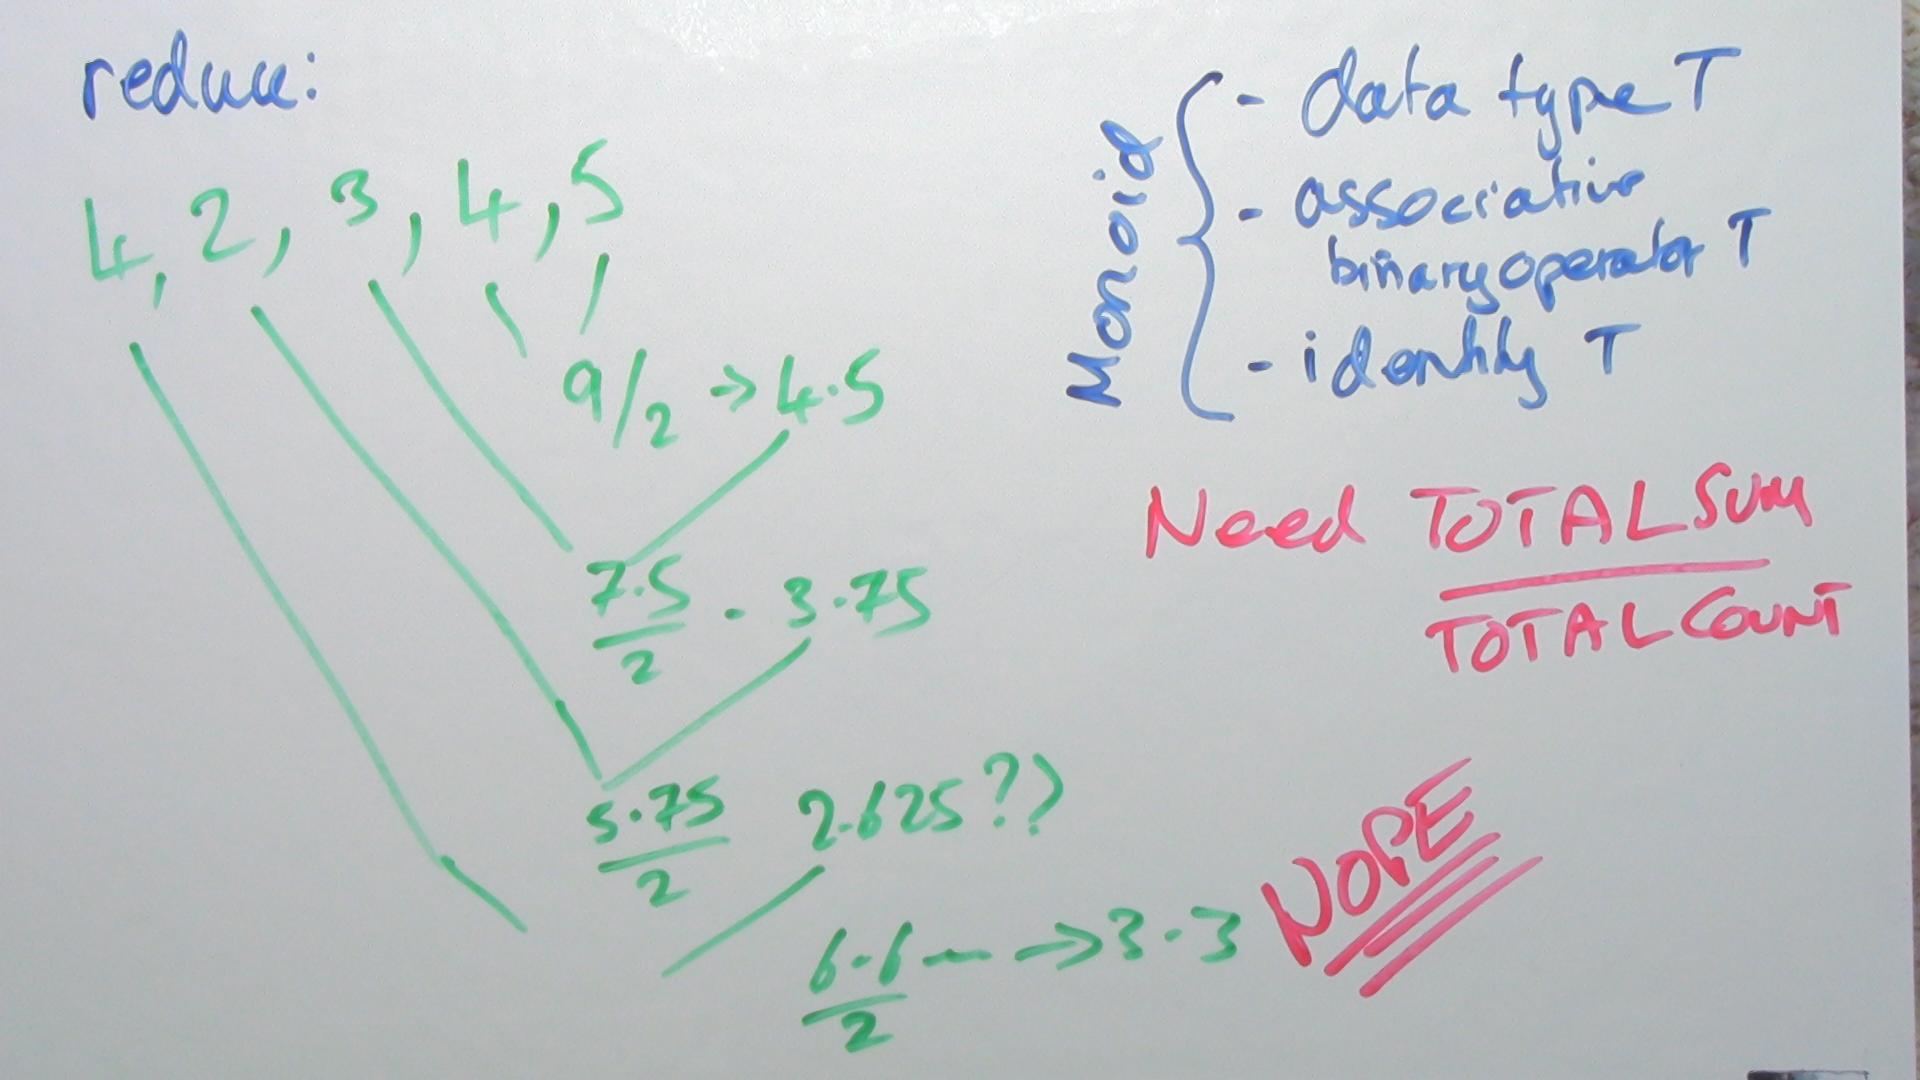 reduce:
4, 2, 3, 4, 5
9/2 → 4.5
7.5
2
- 3.75
5.75
2
2.625??
6.6 — → 3.3
2
Monoid
- data type T
- associative
binary operator T
- identity T
Need TOTAL SUM
TOTAL COUNT
NOPE